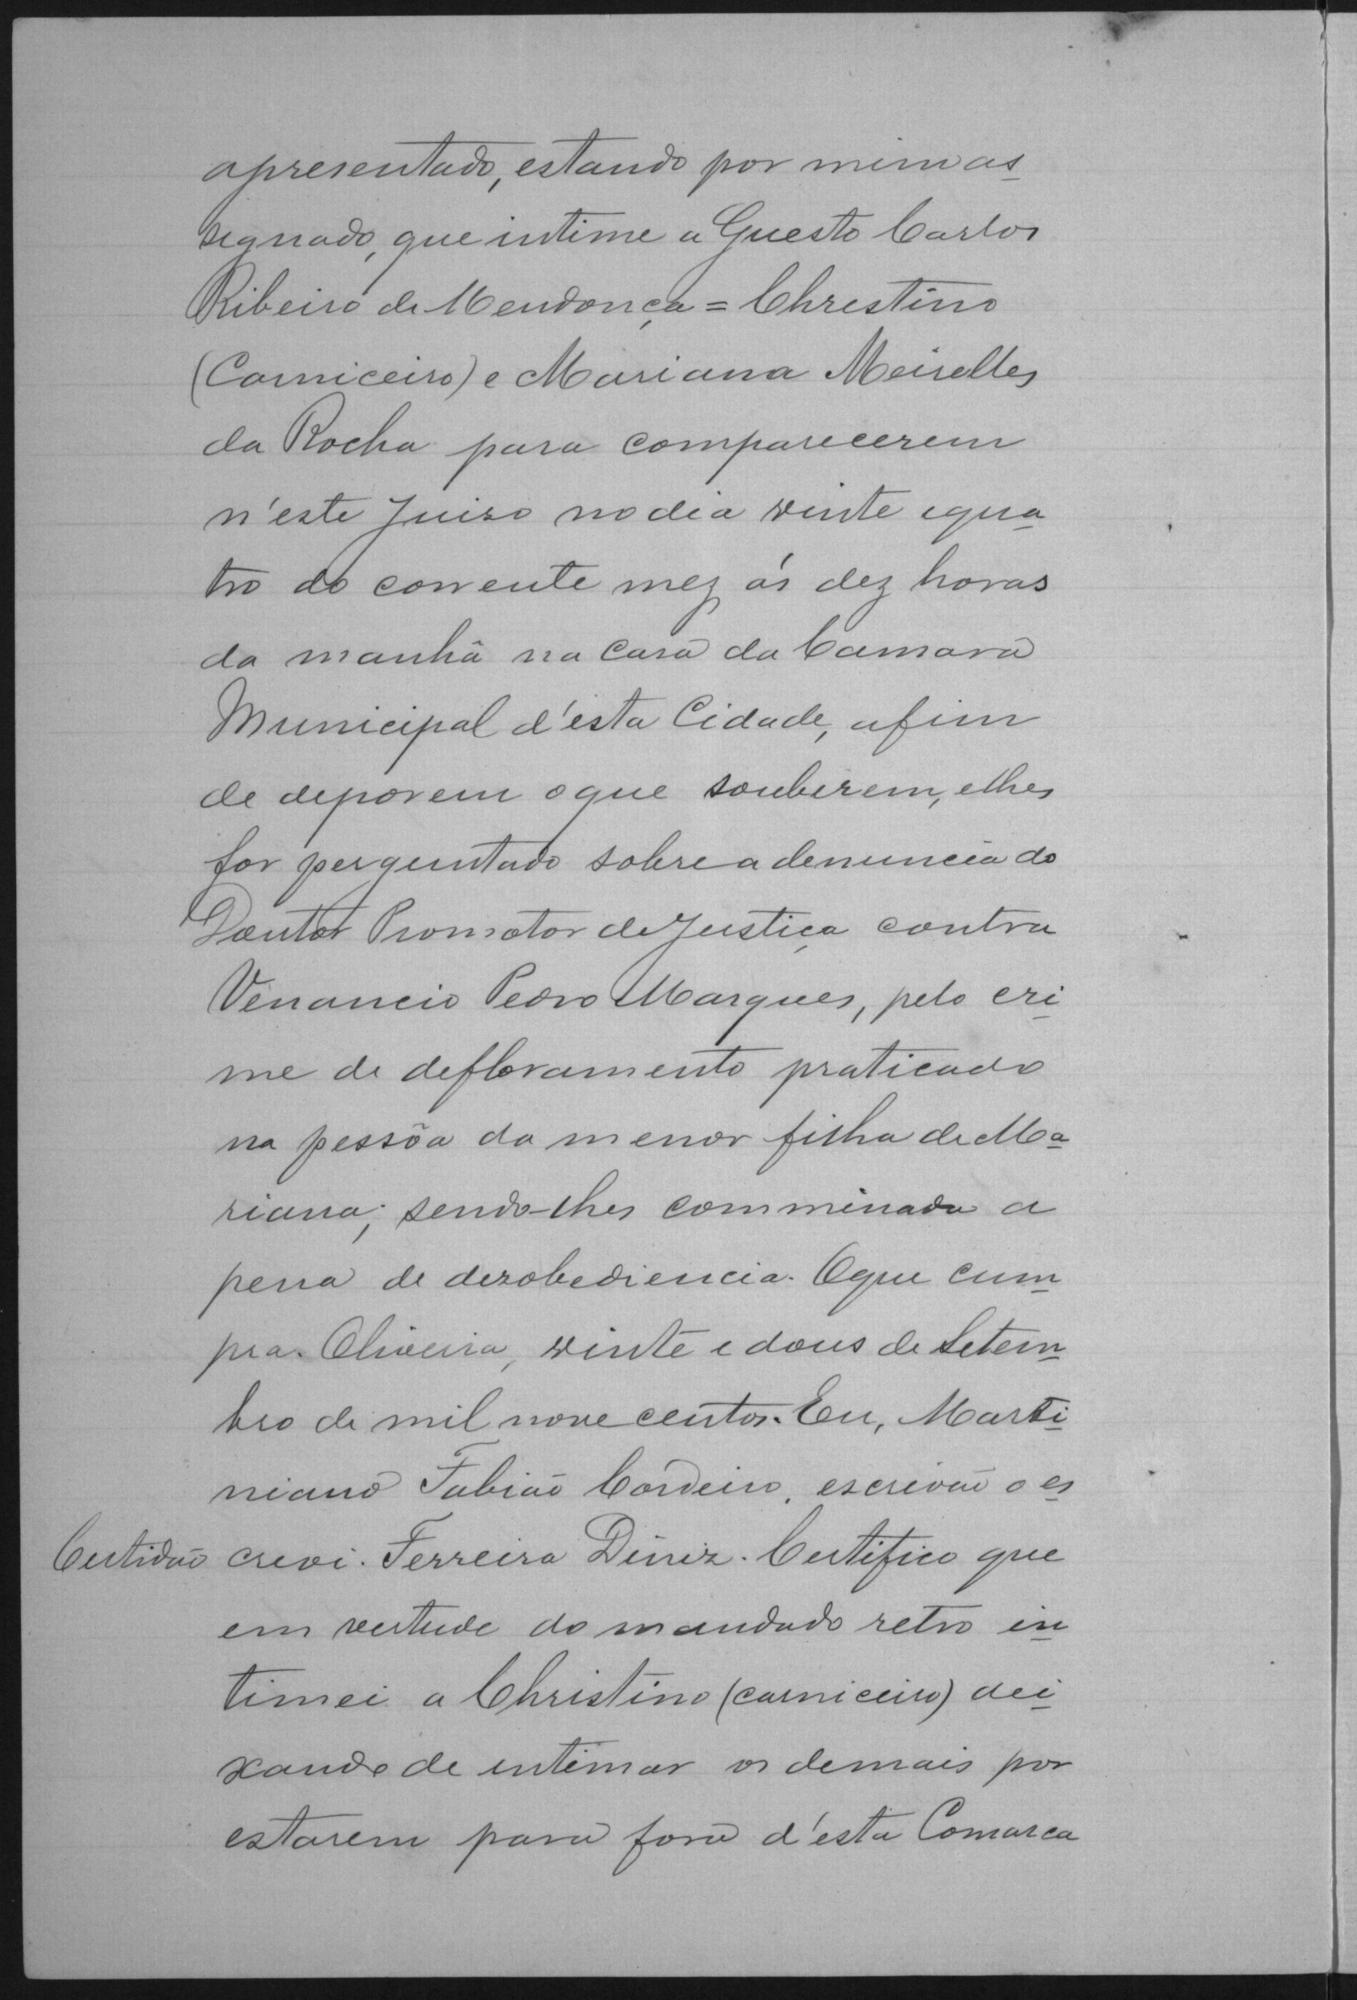 apresentado, estando por mim as
signado, que intime a Guesto Carlos
Ribeiro de Mendonça = Chrestino
(Carniceiro) e Mariana Meirelles
da Rocha para comparecerem
n'este Juiso no dia vinte e qua
tro do corrente mez ás dez horas
da manhã na casa da Camara
Municipal d'esta Cidade, afim
de deporem o que souberem, e lhes
for perguntado sobre a denuncia do
Doutor Promotor de Justiça contra
Venancio Pedro Marques, pelo cri
me de defloramento praticado
na pessôa da menor filha de Ma
riana; sendo-lhes comminada a
pena de dezobediencia. O que cum
pra. Oliveira, vinte e dous de Setem
bro de mil nove centos. Eu, Marti
niano Fabião Cordeiro, escrivão o es
Certidão crevi. Ferreira Diniz. Certifico que
em vertude do mandado retro in
timei a Christino (carniceiro) dei
xando de intimar os demais por
estarem para fora d'esta Comarca